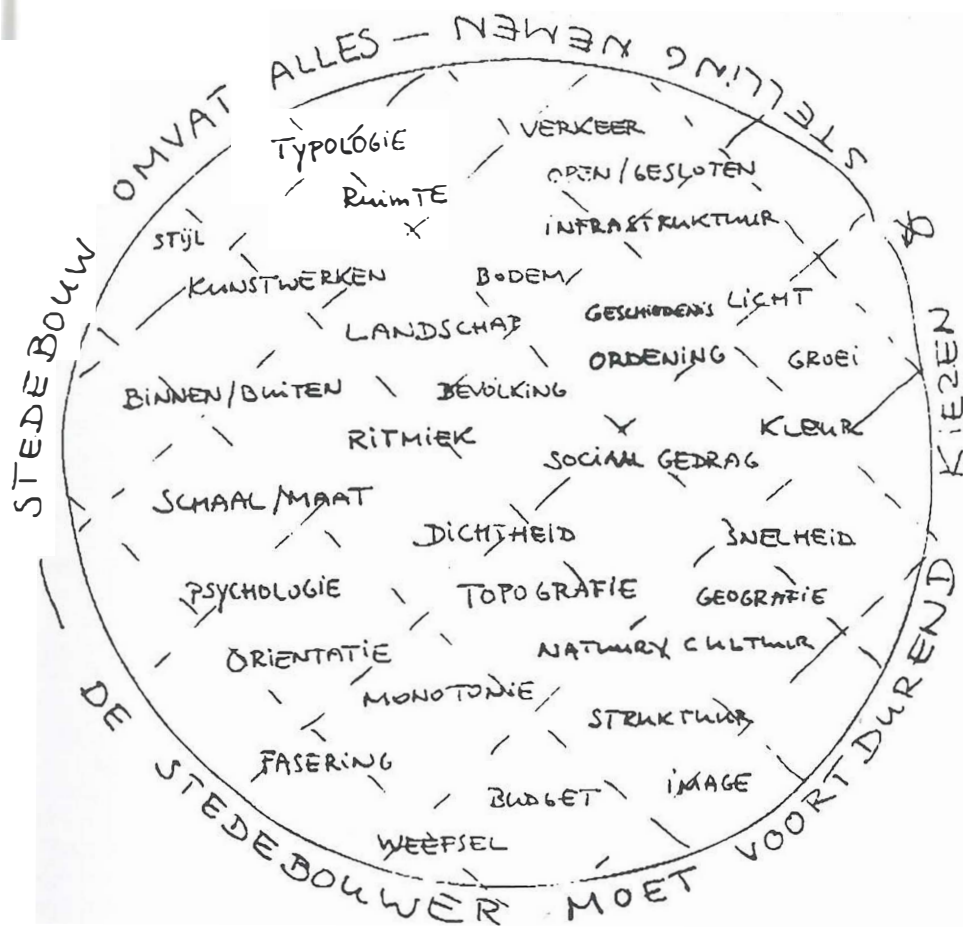 STEDEBOUW OMVAT ALLES — DE STEDEBOUWER MOET VOORTDUREND KIEZEN & STELLING NEMEN —
TYPOLOGIE
VERKEER
OPEN/GESLOTEN
RUIMTE
INFRASTRUKTUUR
STIJL
KUNSTWERKEN
BODEM
GESCHIEDENIS
LICHT
LANDSCHAP
ORDENING
GROEI
BINNEN/BUITEN
BEVOLKING
RITMIEK
KLEUR
SOCIAAL GEDRAG
SCHAAL/MAAT
DICHTHEID
SNELHEID
PSYCHOLOGIE
TOPOGRAFIE
GEOGRAFIE
ORIENTATIE
NATUUR/CULTUUR
MONOTONIE
STRUKTUUR
FASERING
BUDGET
IMAGE
WEEFSEL